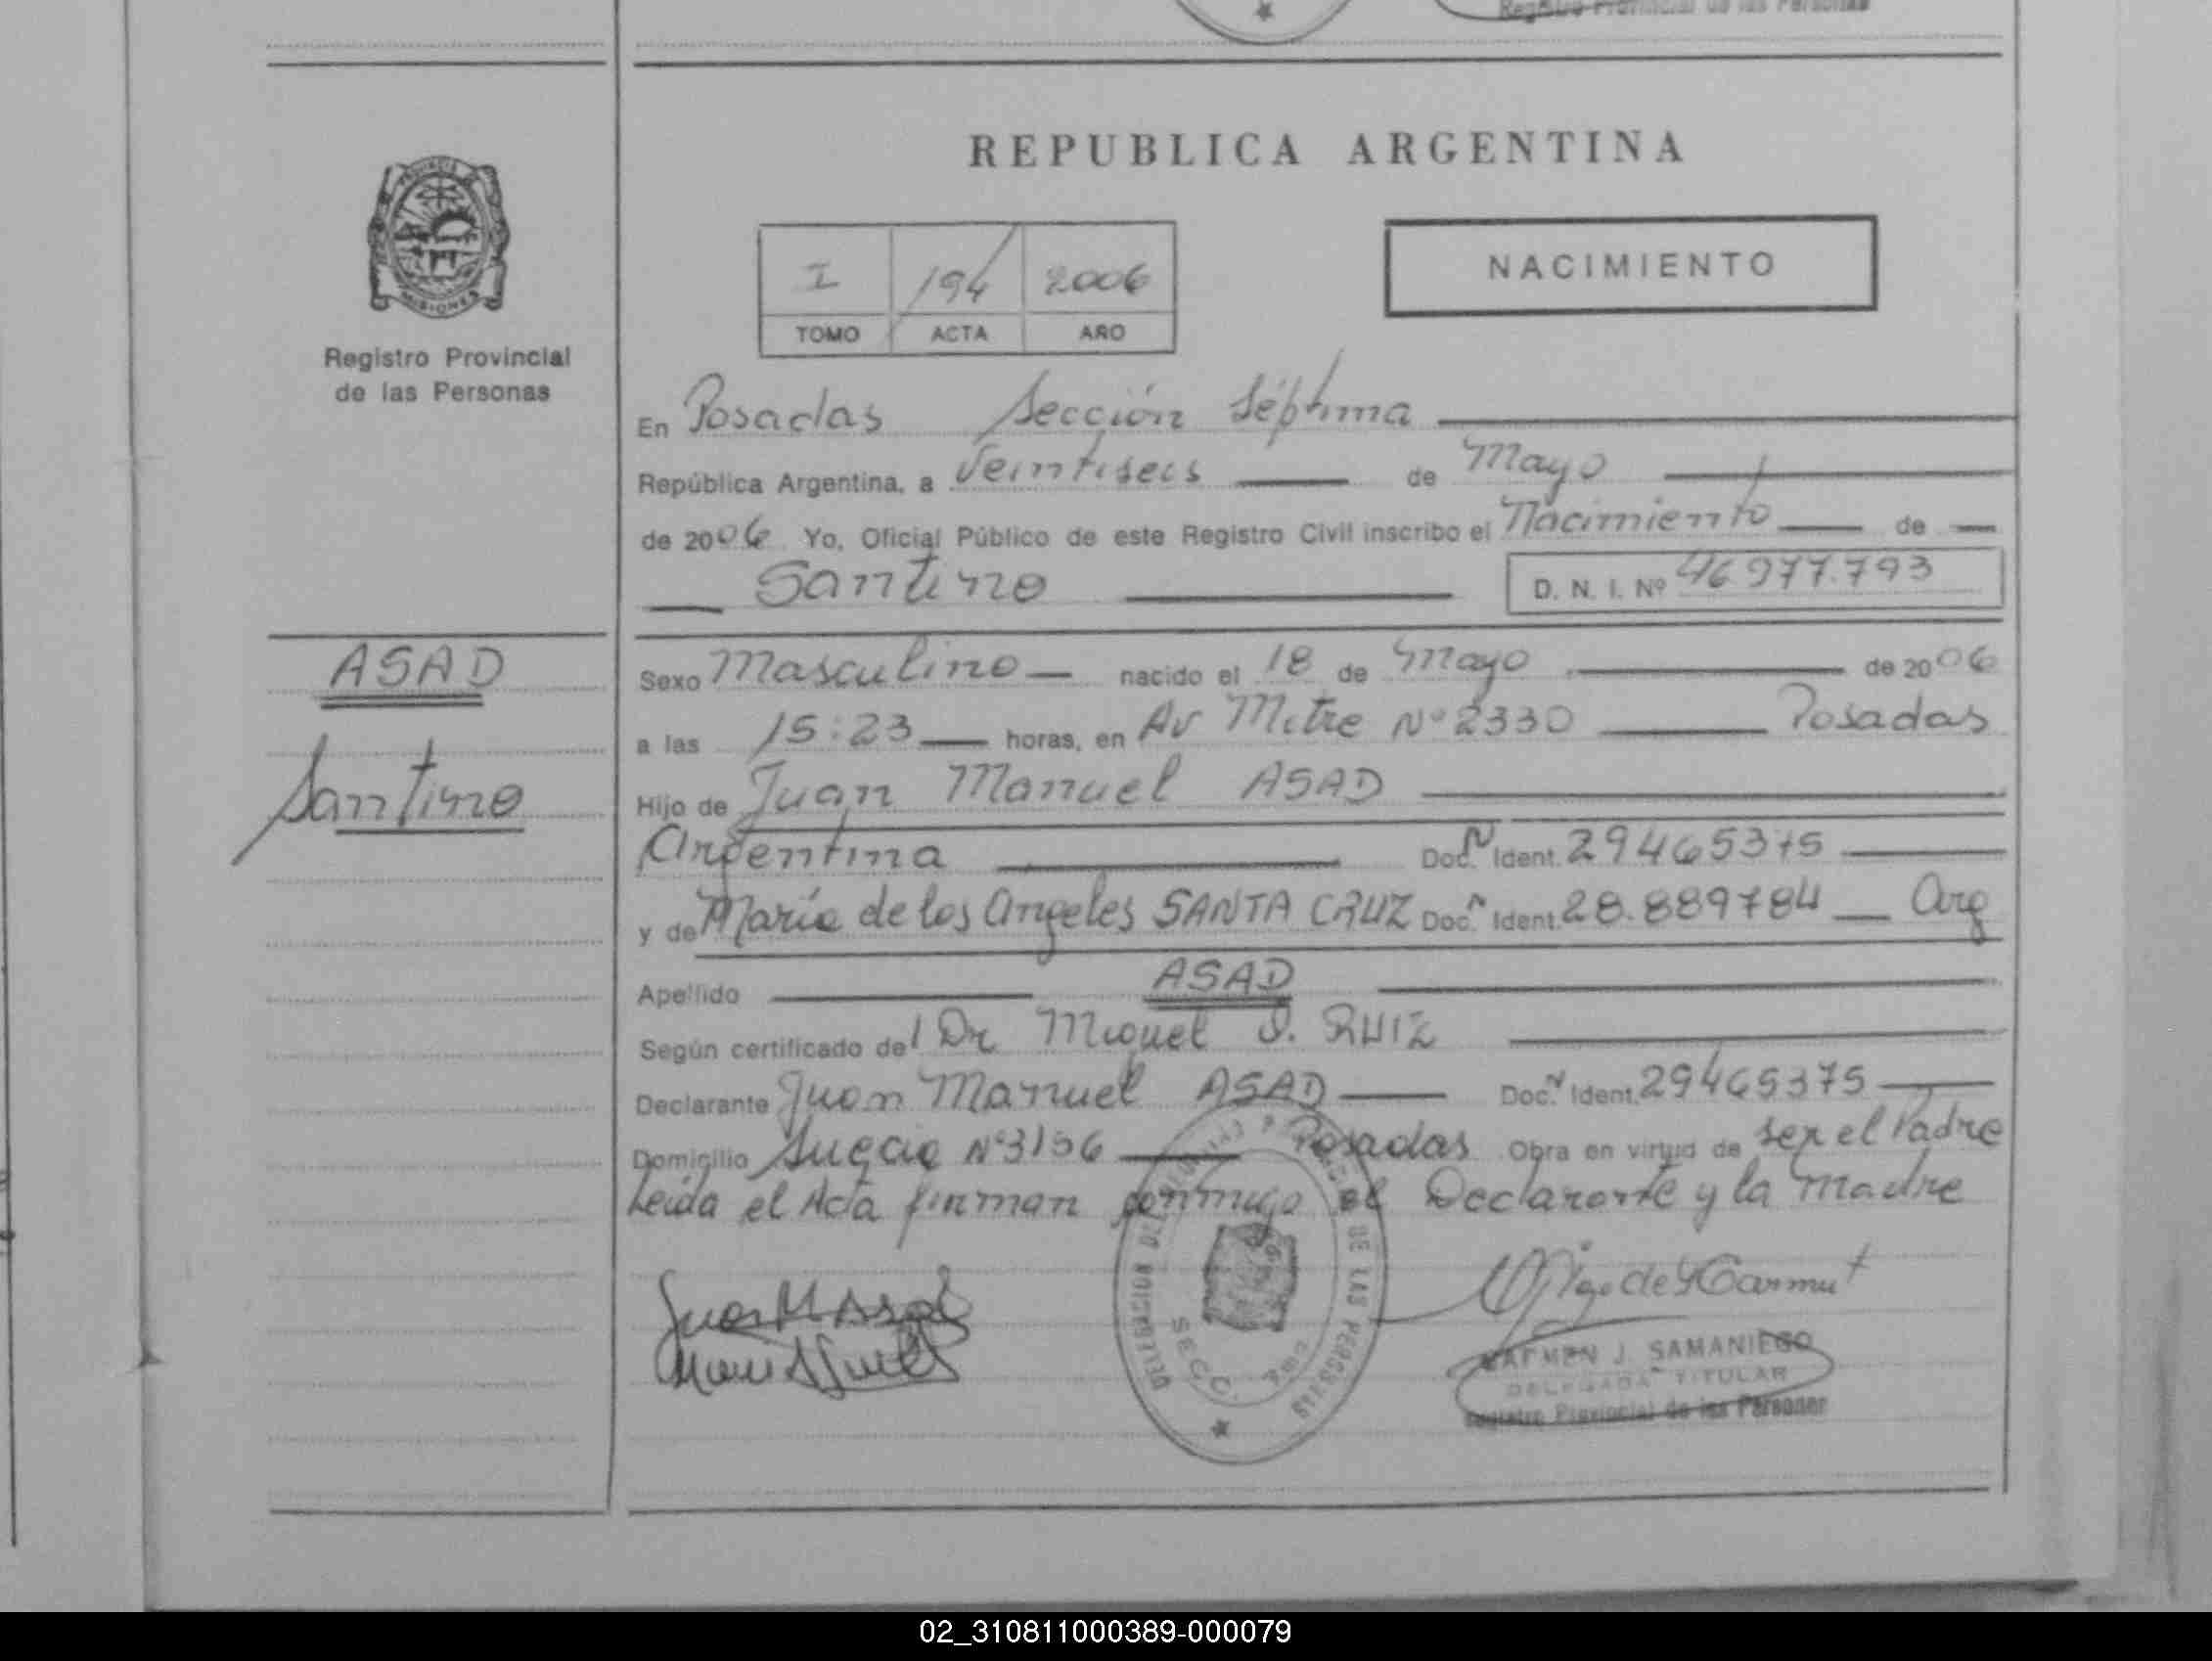 Registro Provincial de las Personas
REPUBLICA ARGENTINA
PROVINCIA
MISIONES
Registro Provincial
de las Personas
I 194 2006
TOMO ACTA AÑO
NACIMIENTO
En Posadas Sección Séptima
República Argentina, a Veintiseis de Mayo
de 2006 Yo, Oficial Público de este Registro Civil inscribo el Nacimiento de
Santino D. N. I. Nº 46.977.793
ASAD
Santino
Sexo Masculino nacido el 18 de Mayo de 2006
a las 15:23 horas, en Av Mitre Nº 2330 Posadas
Hijo de Juan Manuel ASAD
Argentina Doc. N Ident. 29465375
y de María de los Angeles SANTA CRUZ Doc. N Ident. 28.889784 Arg
Apellido ASAD
Según certificado del Dr Miguel RUIZ
Declarante Juan Manuel ASAD Doc. N Ident. 29465375
Domicilio Nº 3156 Posadas Obra en virtud de ser el Padre
Leida el Acta firman conmigo el Declarante y la madre
Juan M Asad
DE LAS PERSONAS
SECC. 7ma
CARMEN J. SAMANIEGO
DELEGADA TITULAR
Registro Provincial de las Personas
02_310811000389-000079